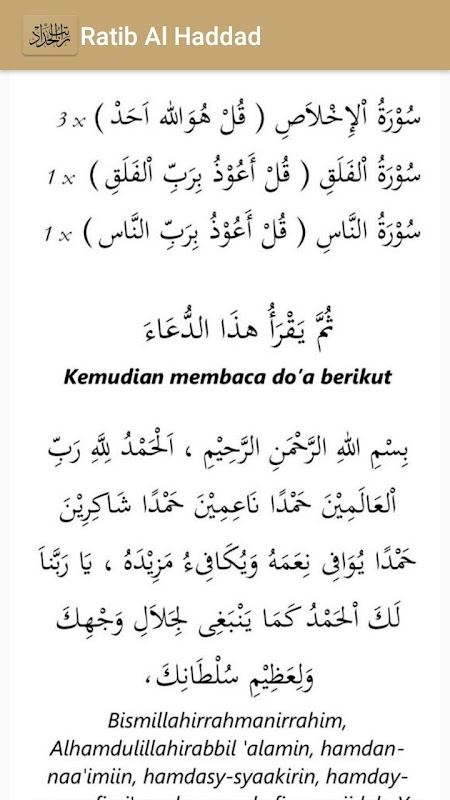 Ratib Al Haddad
سُوْرَةُ اْلإِخْلاَصِ ( قُلْ هُوَالله اَحَدْ ) 3 x
سُوْرَةُ اْلفَلَقِ ( قُلْ أَعُوْذُ بِرَبِّ اْلفَلَقِ ) 1 x
سُوْرَةُ النَّاسِ ( قُلْ أَعُوْذُ بِرَبِّ النَّاس ) 1 x
ثُمَّ يَقْرَأُ هذَا الدُّعَاءَ
Kemudian membaca do’a berikut
بِسْمِ اللهِ الرَّحْمَنِ الرَّحِيْمِ ، اَلْحَمْدُ لِلَّهِ رَبِّ
اْلعَالَمِيْنَ حَمْدًا نَاعِمِيْنَ حَمْدًا شَاكِرِيْنَ
حَمْدًا يُوَافِى نِعَمَهُ وَيُكَافِىءُ مَزِيْدَهُ ، يَا رَبَّنَا
لَكَ اْلحَمْدُ كَمَا يَنْبَغِى لِجَلاَلِ وَجْهِكَ
وَلِعَظِيْمِ سُلْطَانِكَ،
Bismillahirrahmanirrahim,
Alhamdulillahirabbil 'alamin, hamdan-
naa'imiin, hamdasy-syaakirin, hamday-